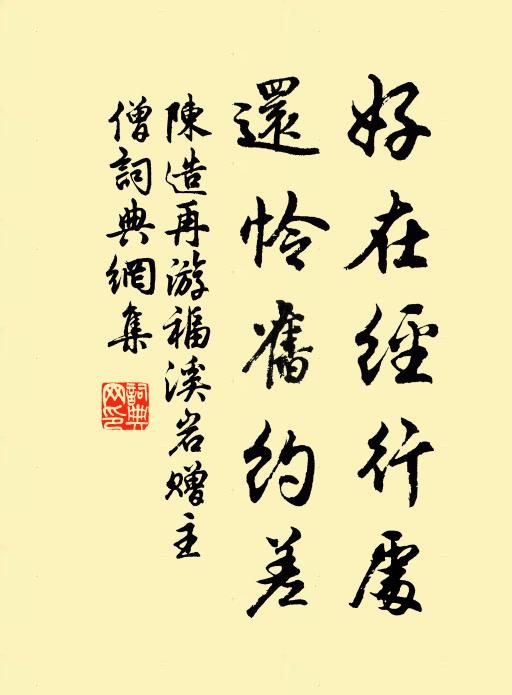 好在經行處
還怜舊約差
陳造再游福溪岩赠主
僧詞典網集
詞典网印